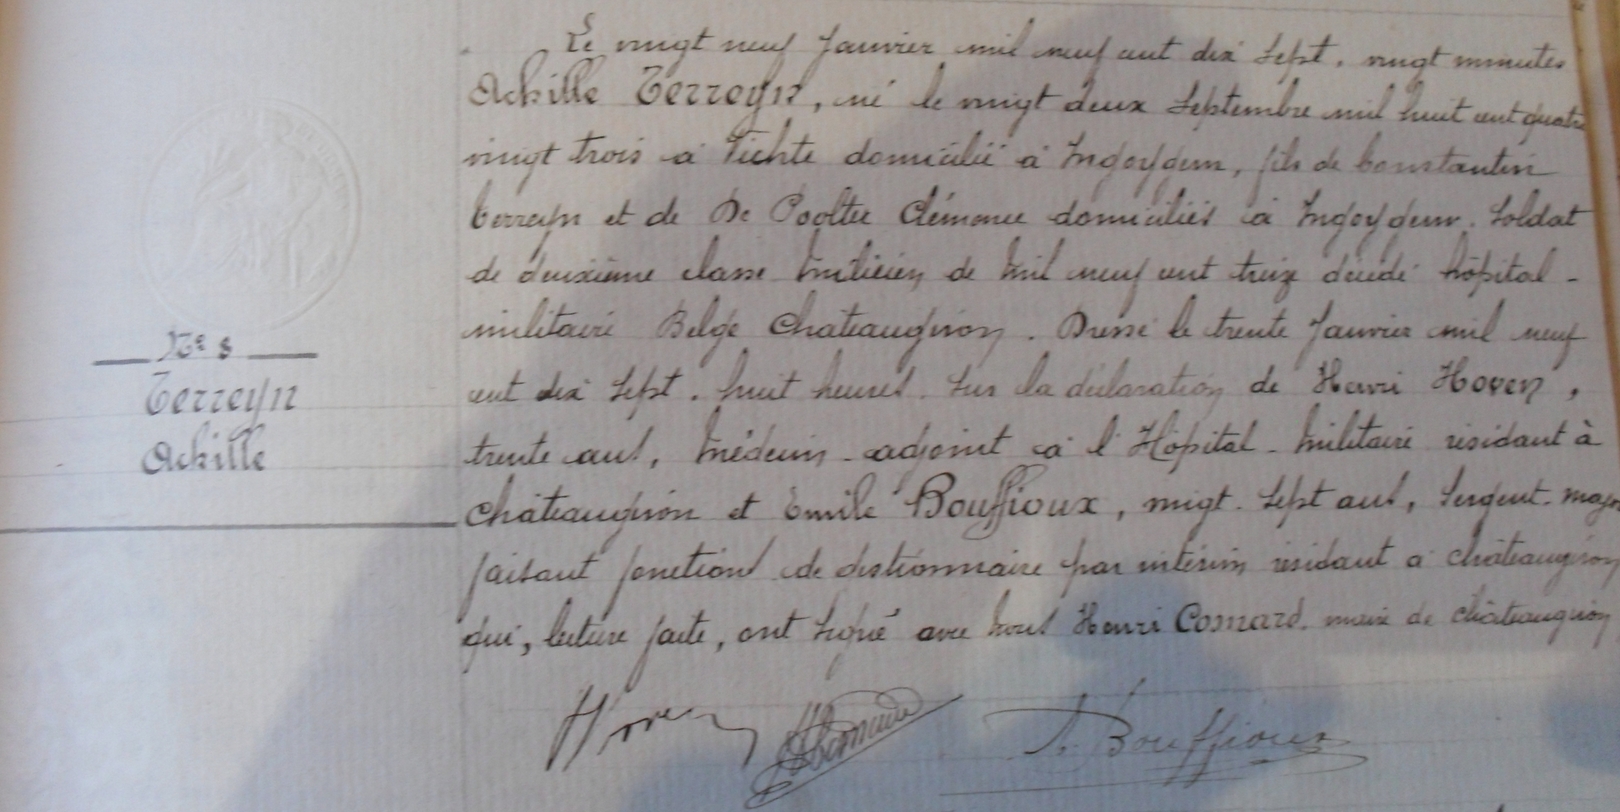 Le vingt neuf Janvier mil neuf cent dix sept, vingt minutes
Achille Terreyn, né le vingt deux Septembre mil huit cent quatre
vingt trois à Vichte domicilié à Ingoygem, fils de Constantin
Terreyn et de De Poolter Clémence domiciliés à Ingoygem. Soldat
de deuxième classe milicien de mil neuf cent treize décédé hôpital -
militaire Belge Chateaugiron. Dressé le trente Janvier mil neuf
cent dix sept. huit heures. Sur la déclaration de Henri Hoven,
N° 8
trente ans, Médecin-adjoint à l'Hôpital-Militaire résidant à
Terreyn
Achille
Châteaugiron et Emile Bouffioux, vingt-sept ans, Sergent-major
faisant fonctions de gestionnaire par intérim résidant à Châteaugiron
qui, lecture faite, ont signé avec nous Henri Comard. maire de Châteaugiron
Hoven
A. Bouffioux